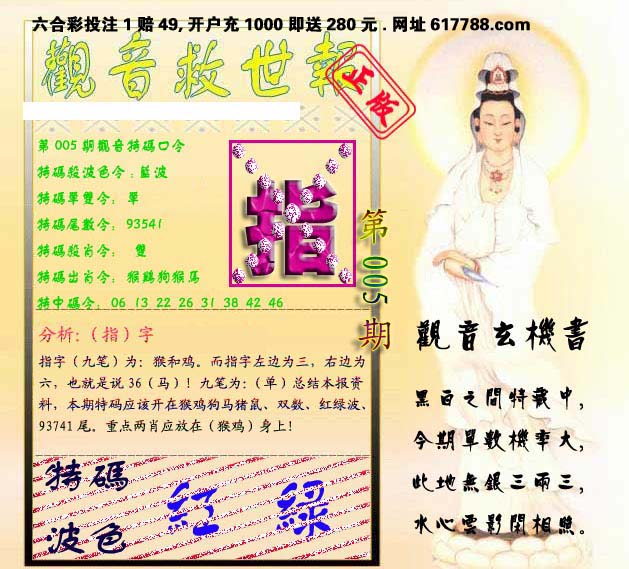 六合彩投注1赔49,开户充1000即送280元.网址617788.com
觀音救世報
正版
第005期觀音特碼口令
特碼殺波色令:藍波
特碼單雙令: 單
特碼尾數令: 93541
特碼殺肖令: 雙
特碼出肖令: 猴鷄狗猴馬
特中碼令: 06 13 22 26 31 38 42 46
指
第005期
分析:(指)字
指字(九笔)为: 猴和鸡。而指字左边为三, 右边为
六, 也就是说36(马)! 九笔为:(单)总结本报资
料, 本期特码应该开在猴鸡狗马猪鼠、双数、红绿波、
93741尾。重点两肖应放在(猴鸡)身上!
特碼
波色
紅 綠
觀音玄機書
黑白之間特載中,
今期單數機率大,
此地無銀三兩三,
水心雲影閑相照。